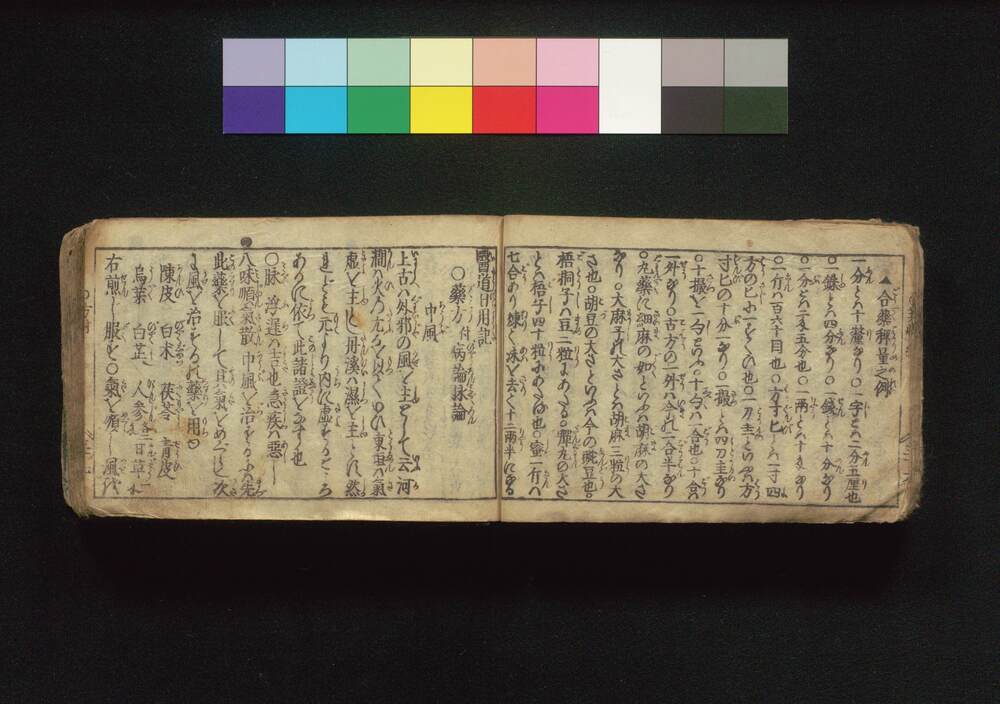 ▲合藥秤量之例
一分とハ十釐なり○一字とハ二分五厘也
○銖とハ四分なり○一錢とハ十分なり
○一分とハ二匁五分也○一兩とハ十匁なり
○一斤ハ百六十目也○方寸ヒとハ一寸四
方のヒに一すくひ也○一刀圭とハ方
寸ヒの十分一なり○一撮とハ四刀圭なり
○十撮と一勺といふ十勺ハ一合也○十合ハ
一升なり○古方の一升ハ今の一合半なり
○丸藥に細麻の如しといふハ胡麻の大さ
なり○大麻子の大さとハ胡麻三粒の大
さ也○胡豆の大さといふハ今の豌豆也○
梧桐子ハ豆二粒にあたる○彈丸の大さ
とハ梧子四十粒にあたる也○蜜一斤ハ
七合あり煉て沫を去て十二兩半になる
醫道日用記
○藥方 付病論脉論
中風
上古ハ外邪の風を主として云河
間ハ火の元なる以ていひ東垣ハ氣
虚を主とし丹溪ハ濕を主とす然
是とも元より内に虚をるところ
あるに依て此諸證をなす也
○脉 浮遲ハ吉也急疾ハ惡し
八味順氣散 中風を治するに先
此藥を服して其氣をめぐらし次
に風を治する藥を用ゆ
陳皮 白朮 茯苓 青皮
烏藥 白芷 人參 各一匁 甘草
右煎し服す○氣を順し風